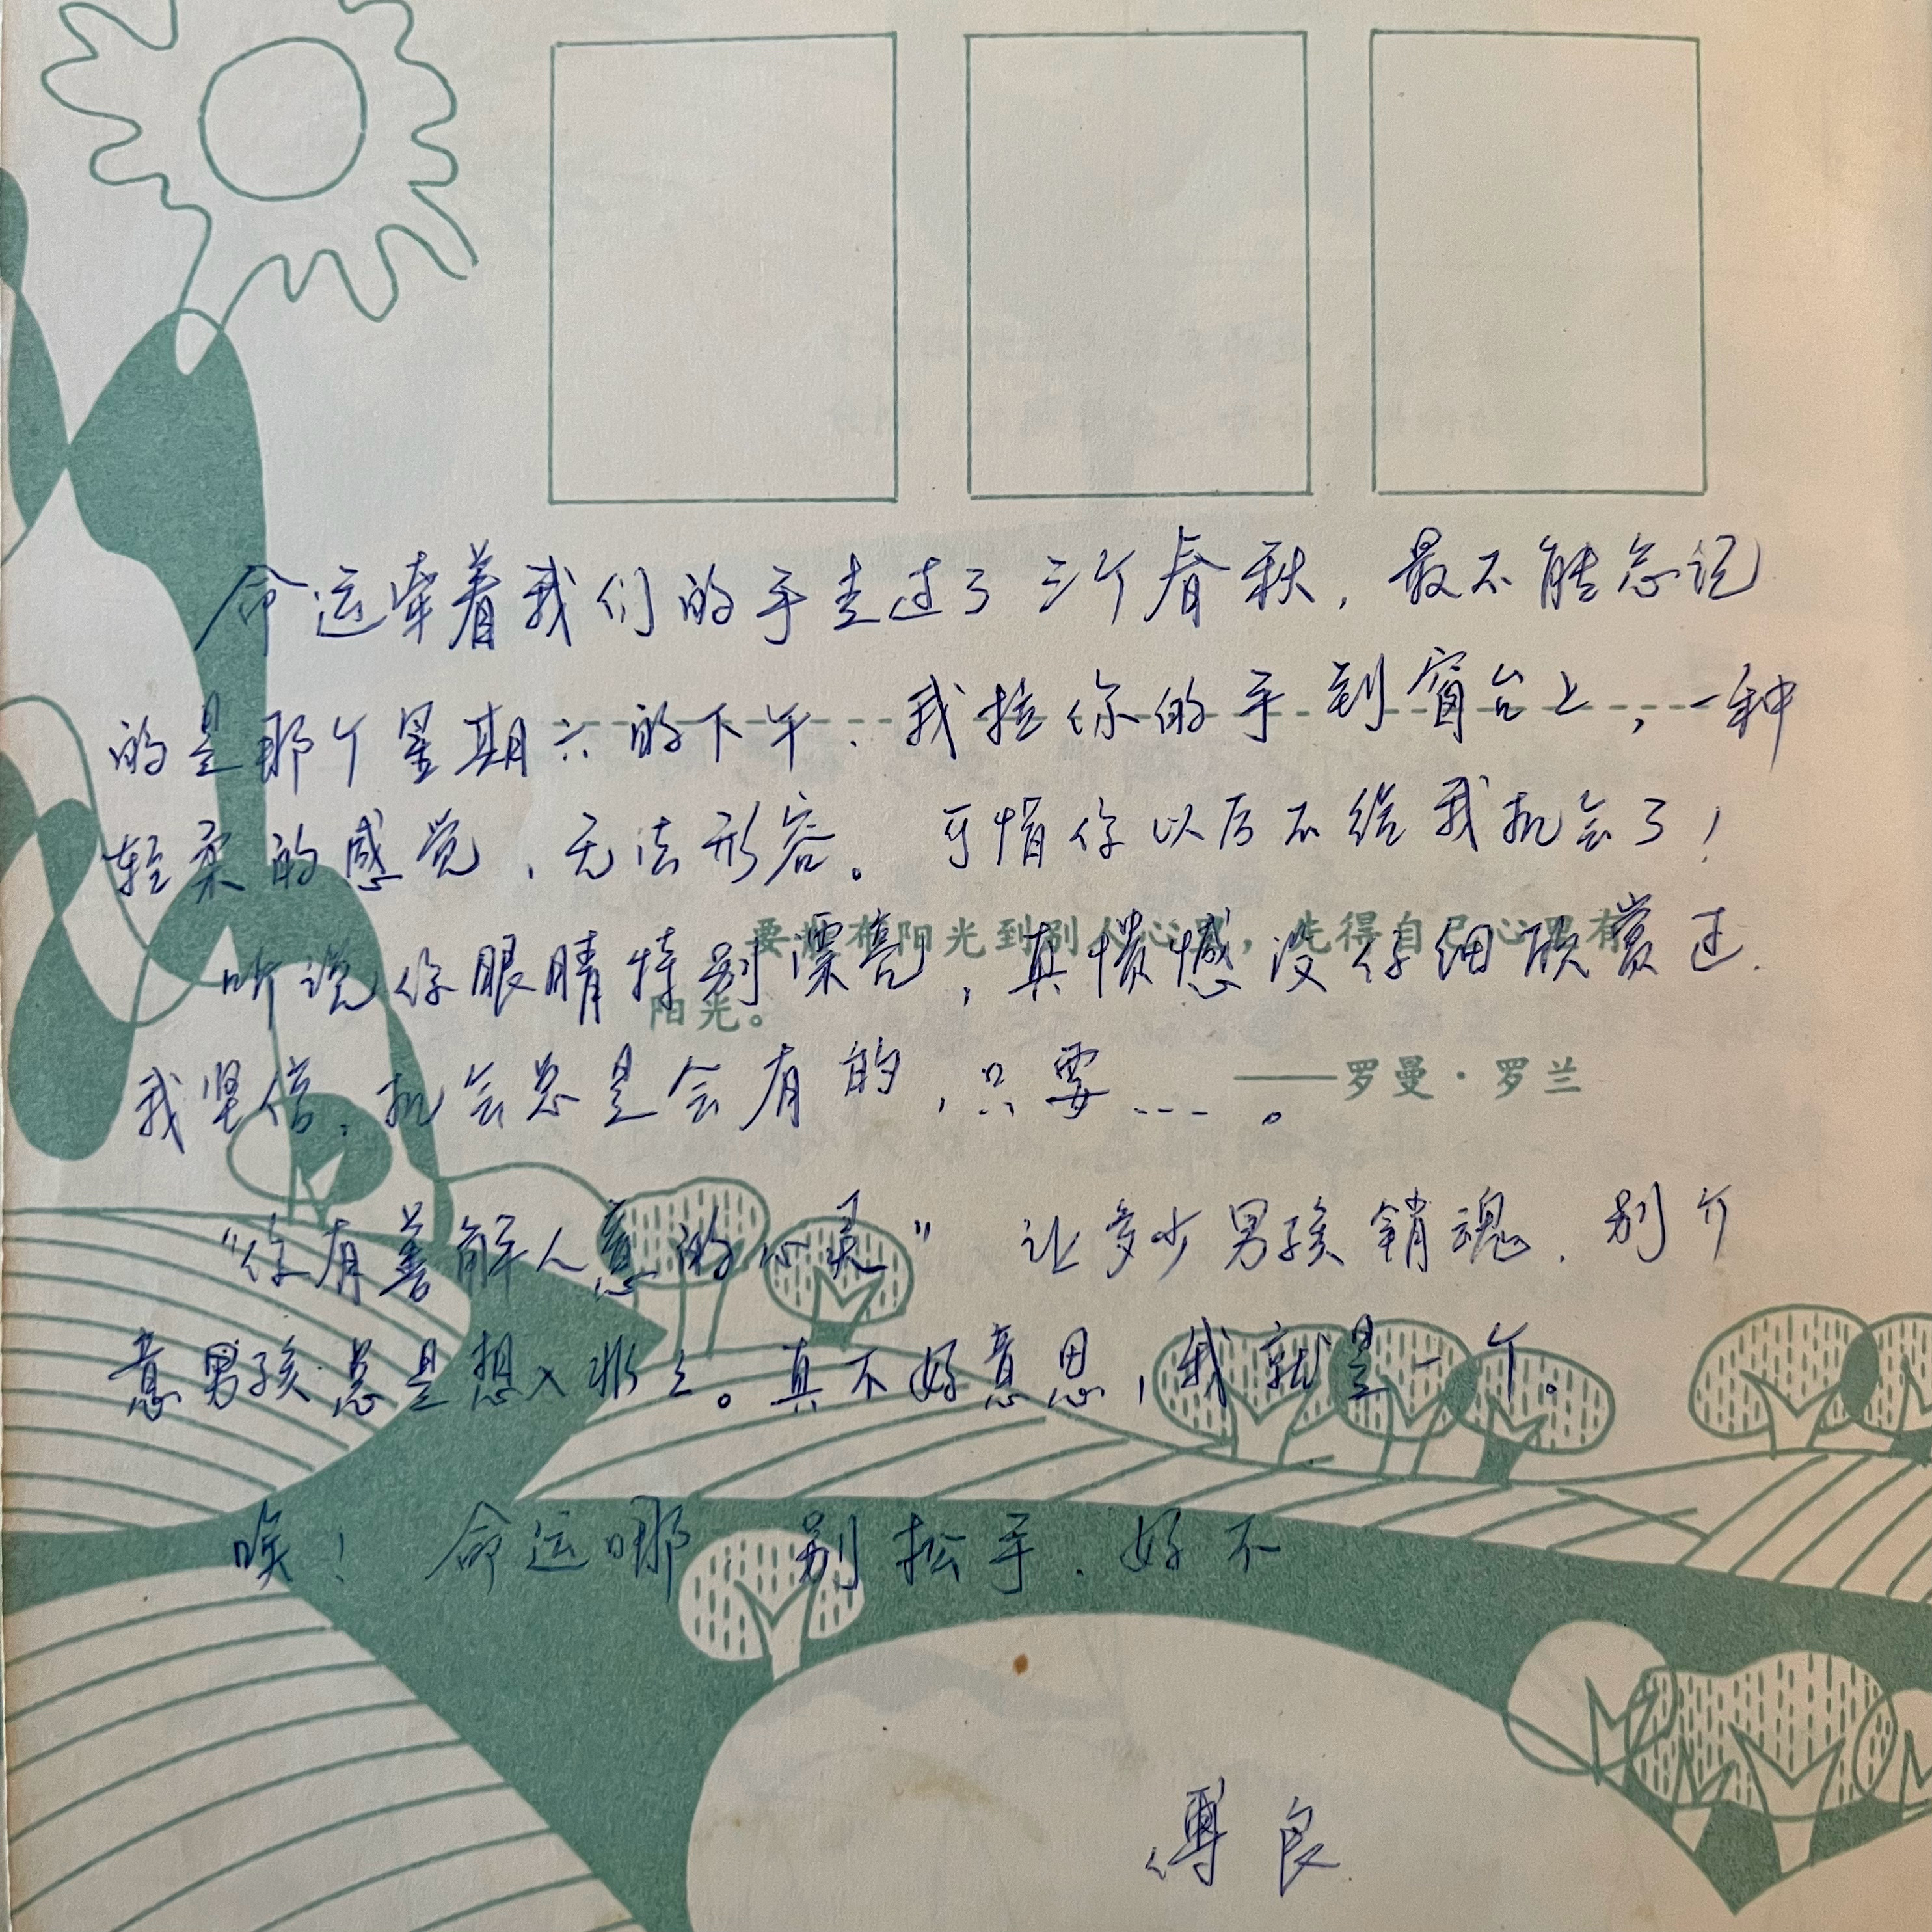 命运牵着我们的手走过了三个春秋，最不能忘记
的是那个星期六的下午，我拉你的手到窗台上，一种
轻柔的感觉，无法形容。可惜你以后不给我机会了！
要撒布阳光到别人心里，先得自己心里有
听说你眼睛特别漂亮，真愦憾没仔细欣赏过.
阳光。
我坚信，机会总是会有的，只要……。
——罗曼·罗兰
“你有善解人意的心灵” 让多少男孩销魂．别介
意男孩总是想入非非。真不好意思，我就是一个。
唉！命运哪，别松手．好不
傅良